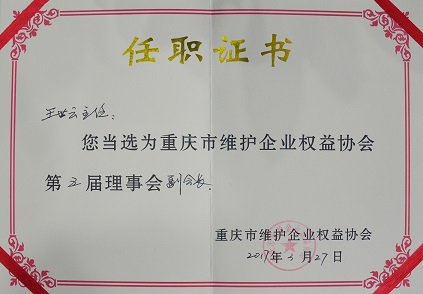 任职证书
王世云主任：
您当选为重庆市维护企业权益协会
第三届理事会副会长
重庆市维护企业权益协会
2017年3月27日